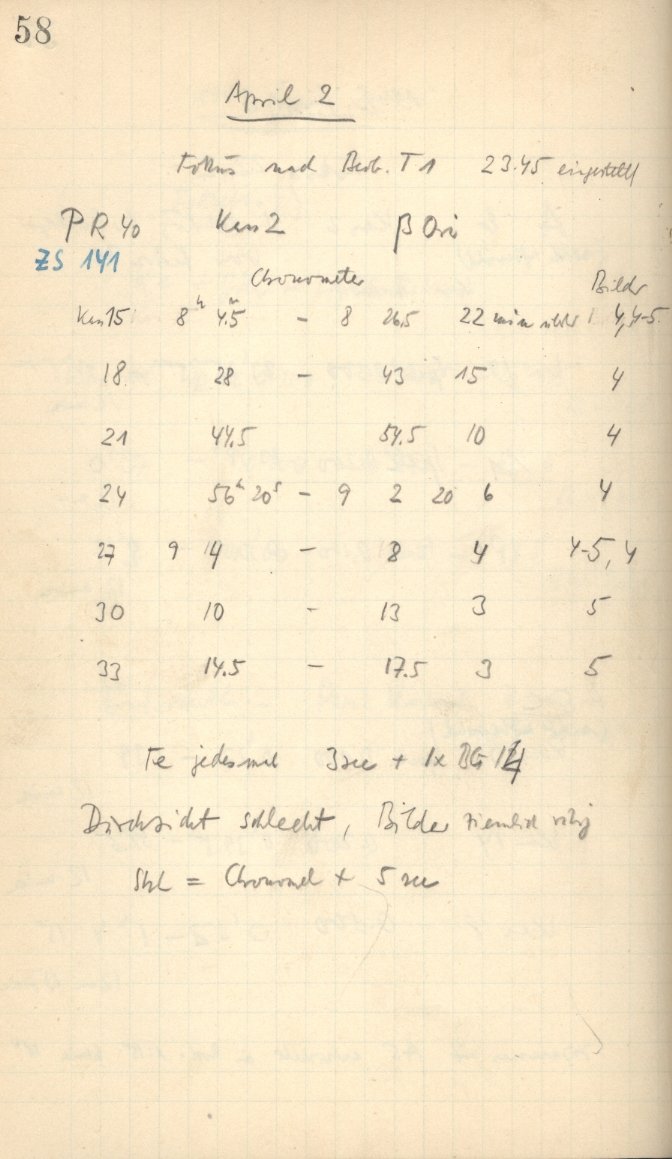 58
April 2
Fokus nach Beob. T 1 23.45 eingestellt
PR 40 Kas 2 β Ori
ZS 141
Chronometer Bilder
15 8h 4.5m – 8 26.5 22 min 4, 4-5
18 28 – 43 15 4
21 44.5 54.5 10 4
24 56m 20s – 9 2 20 6 4
27 9 4 – 8 4 4-5, 4
30 10 – 13 3 5
33 14.5 – 17.5 3 5
Fe jedesmal 3 sec + 1x BG 14
Durchsicht schlecht, Bilder ziemlich ruhig
Stzt = Chronomet + 5 sec